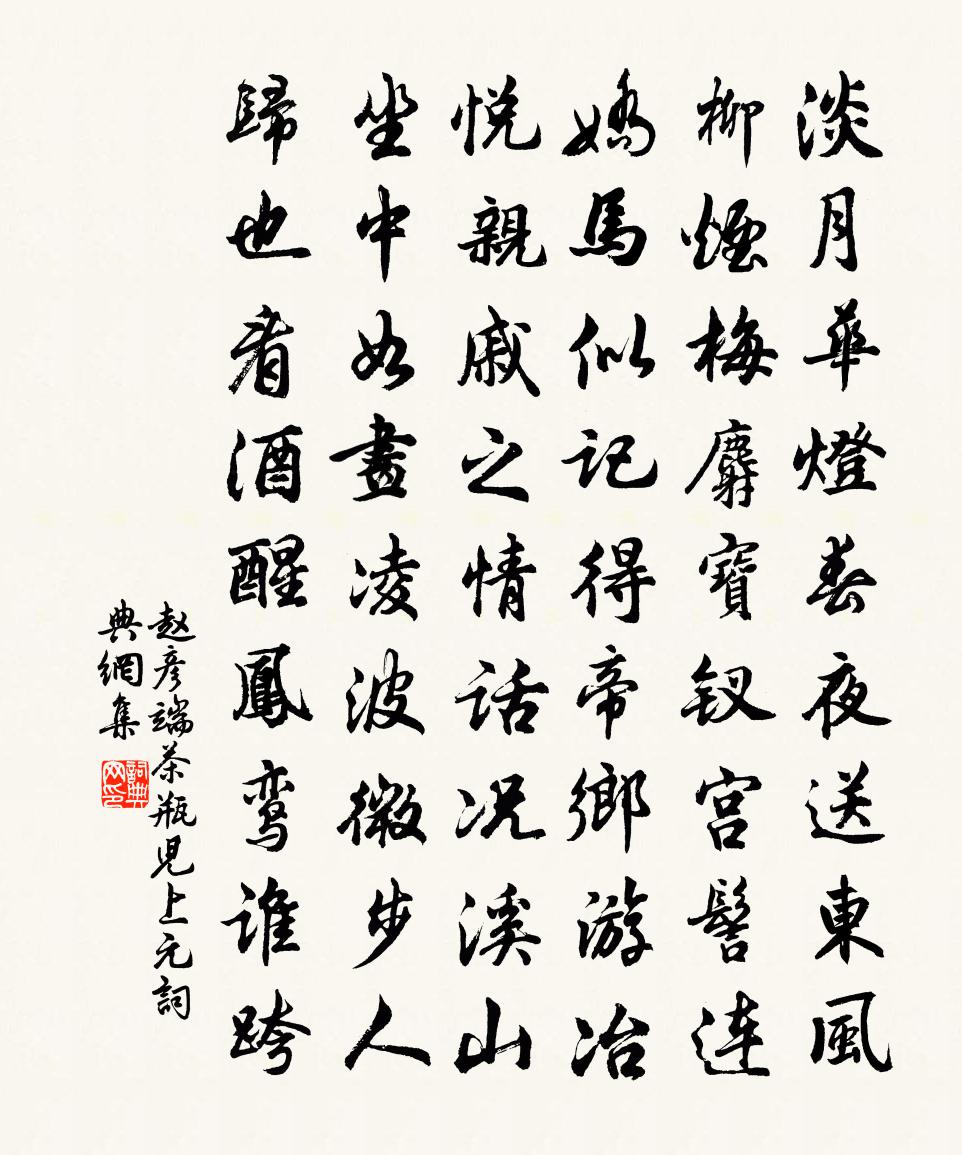 淡月華燈春夜送東風
柳煙梅麝寶钗宫髻連
嬌馬似记得帝鄉游冶
悦親戚之情话况溪山
坐中如畫凌波微步人
歸也看酒醒鳳鸾谁跨
赵彦端茶瓶児上元詞
典網集
詞典网印